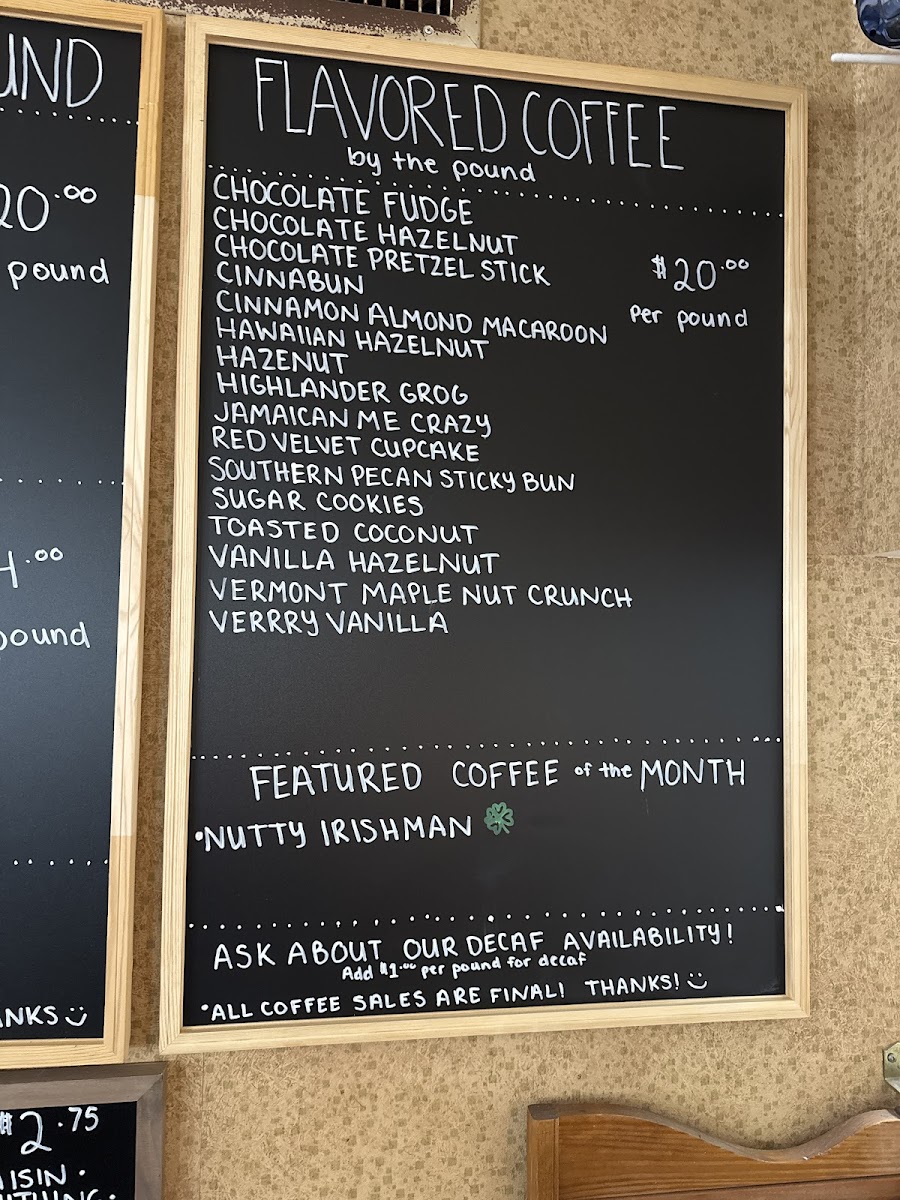 UND
20.00
pound
4.00
pound
ANKS
FLAVORED COFFEE
by the pound
CHOCOLATE FUDGE
CHOCOLATE HAZELNUT
CHOCOLATE PRETZEL STICK
CINNABUN
CINNAMON ALMOND MACAROON
HAWAIIAN HAZELNUT
HAZENUT
HIGHLANDER GROG
JAMAICAN ME CRAZY
RED VELVET CUPCAKE
SOUTHERN PECAN STICKY BUN
SUGAR COOKIES
TOASTED COCONUT
VANILLA HAZELNUT
VERMONT MAPLE NUT CRUNCH
VERRRY VANILLA
$20.00
per pound
FEATURED COFFEE of the MONTH
•NUTTY IRISHMAN
ASK ABOUT OUR DECAF AVAILABILITY!
Add $1.00 per pound for decaf
•ALL COFFEE SALES ARE FINAL! THANKS!
$2.75
AISIN •